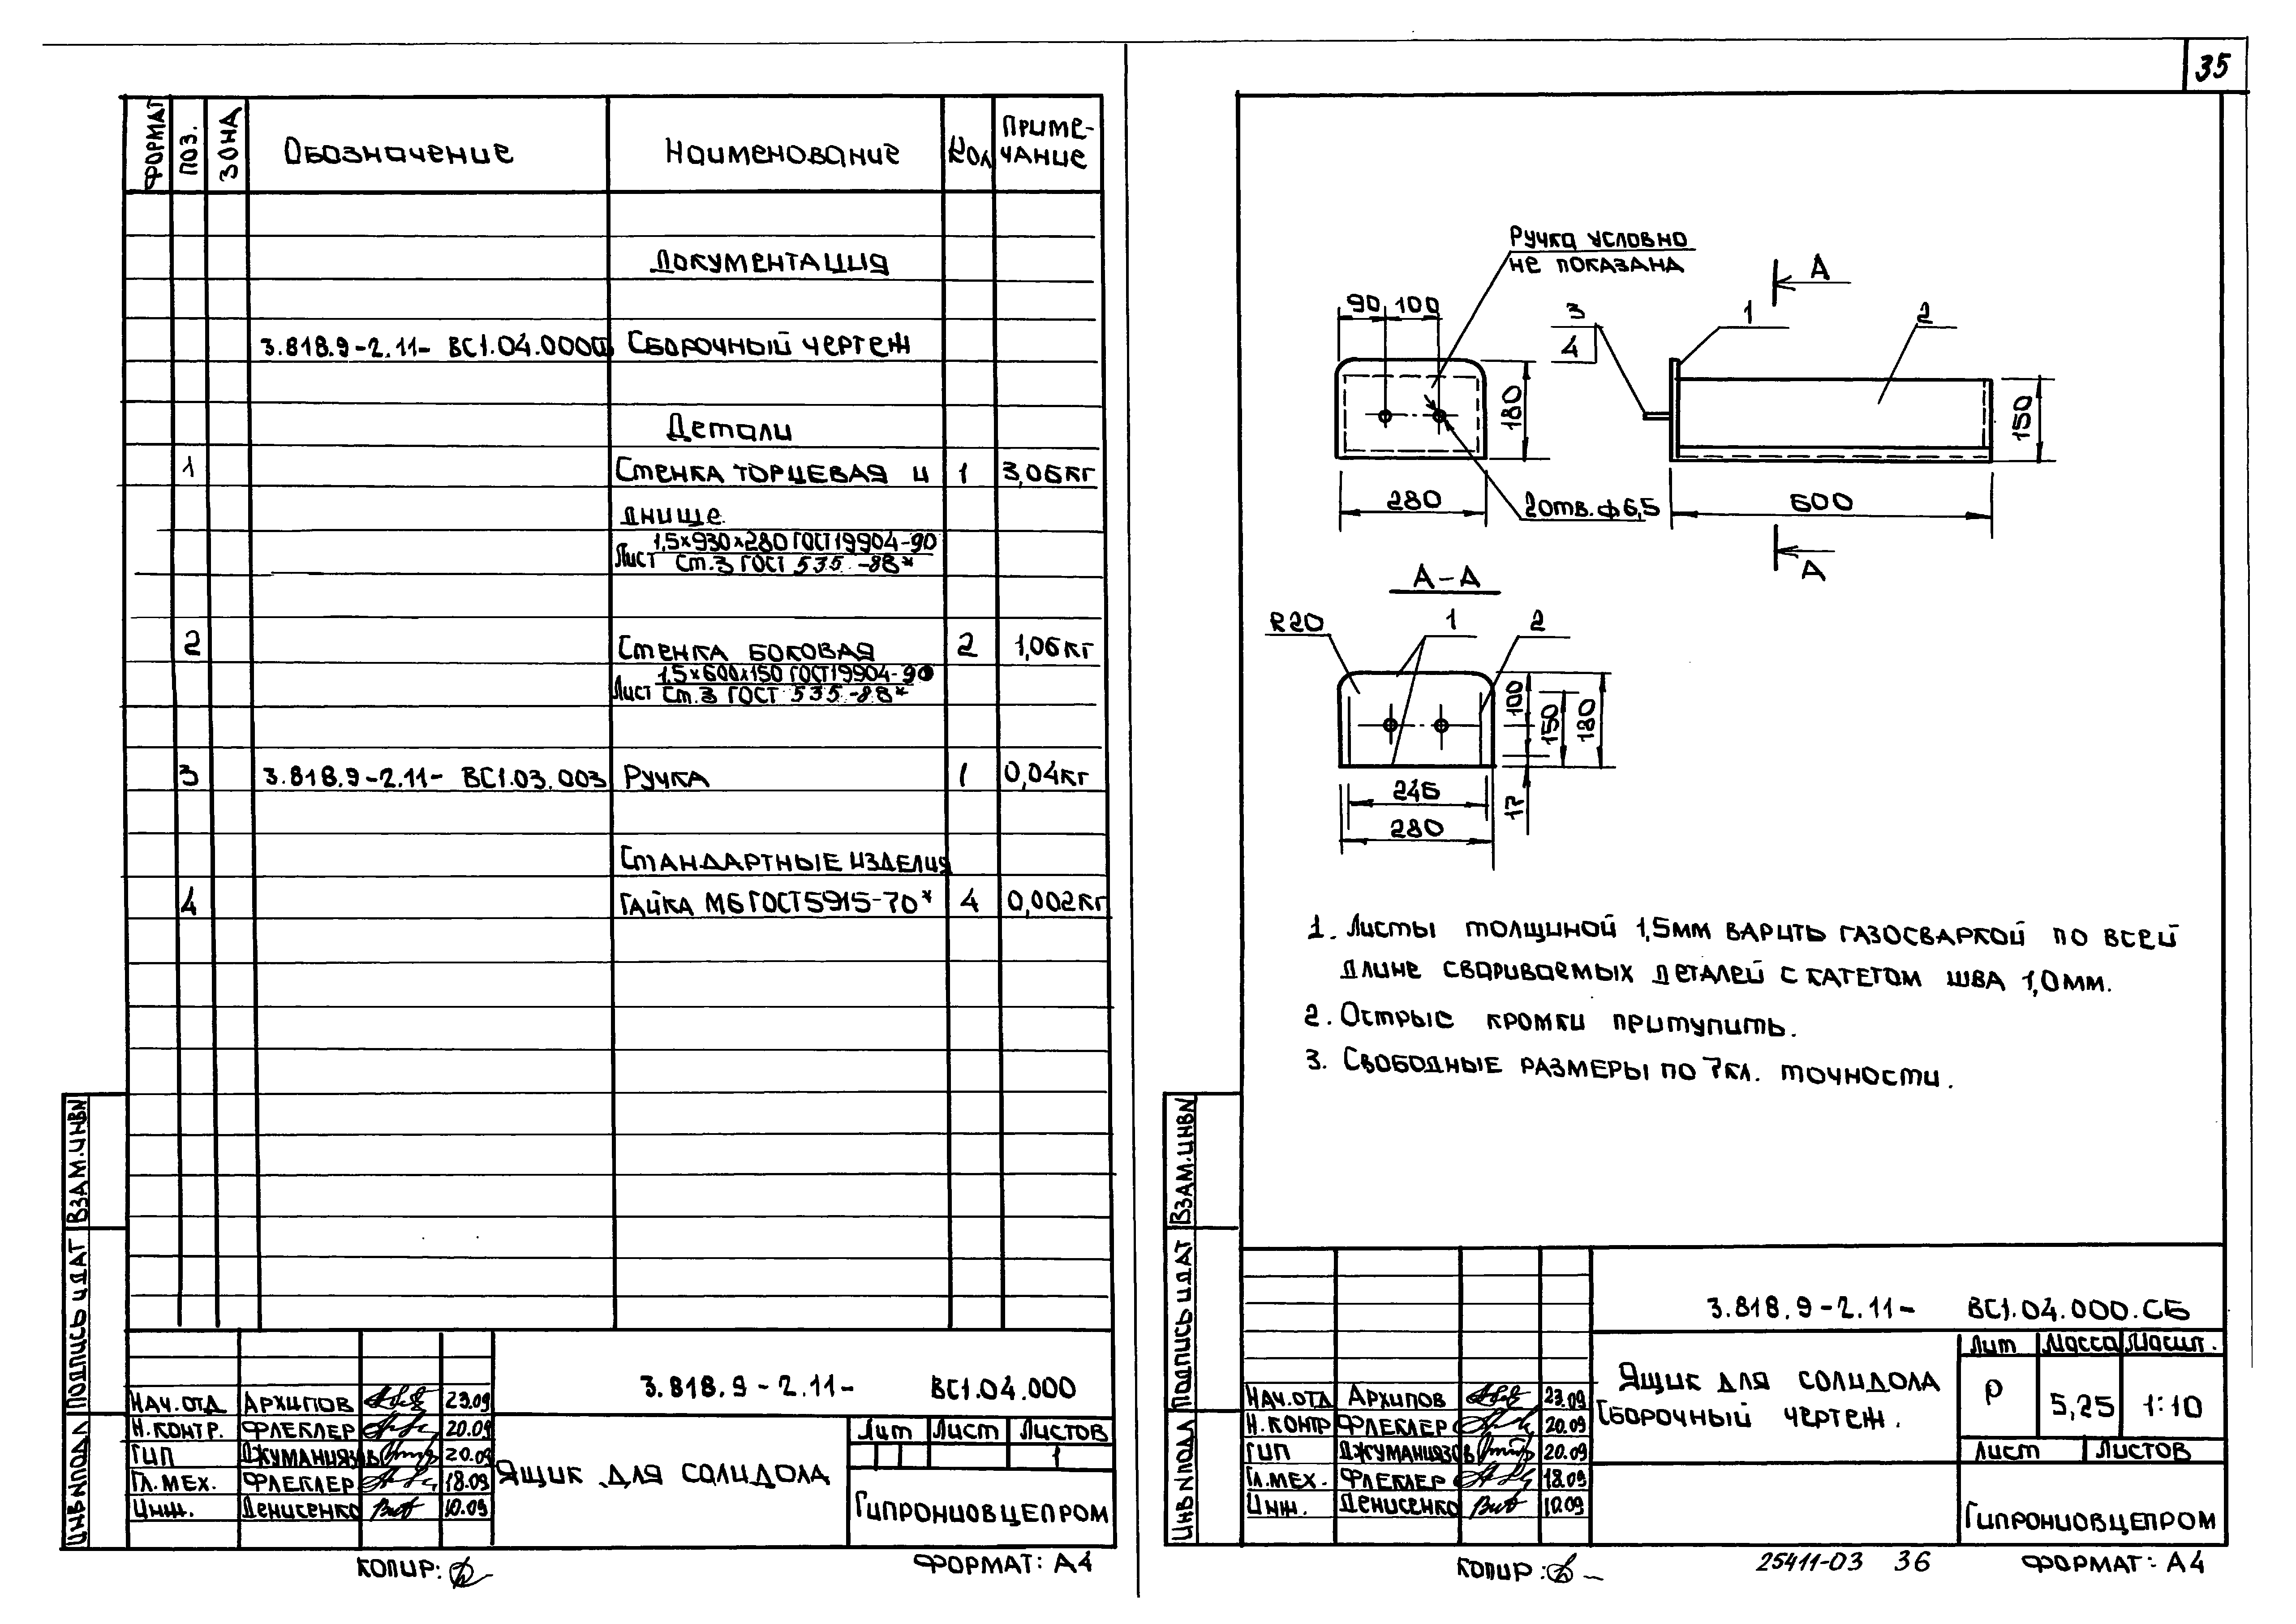 35
ФОРМАТ
ПОЗ.
ЗОНА
Обозначение
Наименование
Кол
Приме-
чание
Документация
3.818.9-2.11- ВС1.04.000 Сборочный чертеж
Детали
1 Стенка торцевая и 1 3,06кг
днище
1,5×930×280 ГОСТ19904-90
Лист Ст.3 ГОСТ 535-88*
2 Стенка боковая 2 1,06кг
1,5×600×150 ГОСТ19904-90
Лист Ст.3 ГОСТ 535-88*
3 3.818.9-2.11- ВС1.03.003 Ручка 1 0,04кг
Стандартные изделия
4 Гайка М6 ГОСТ5915-70* 4 0,002кг
ВЗАМ.ИНВN
ПОДПИСЬ И ДАТ
ИНВNПОДЛ
3.818.9-2.11- ВС1.04.000
Нач.отд Архипов 23.09
Н.контр. Флеклер 20.09
ГИП Джуманиязов 20.09
Гл.мех. Флеклер 18.09
Инж. Денисенко 10.09
Ящик для солидола
Лит Лист Листов
1
Гипронииовцепром
Копир:
Формат: А4
Ручка условно
не показана
90 100
180
280
2отв.ф6,5
А
3
4
1
2
150
600
А
А-А
R20
1
2
100
150
180
17
246
280
1. Листы толщиной 1,5мм варить газосваркой по всей
длине свариваемых деталей с катетом шва 1,0мм.
2. Острые кромки притупить.
3. Свободные размеры по 7кл. точности.
ВЗАМ.ИНВN
ПОДПИСЬ И ДАТ
ИНВ NПОДЛ
3.818.9-2.11- ВС1.04.000.СБ
Нач.отд Архипов 23.09
Н.контр Флеклер 20.09
ГИП Джуманиязов 20.09
Гл.мех. Флеклер 18.09
Инж. Денисенко 10.09
Ящик для солидола
Сборочный чертеж.
Лит Масса Масшт.
Р 5,25 1:10
Лист Листов
Гипронииовцепром
Копир:
25411-03 36
Формат: А4